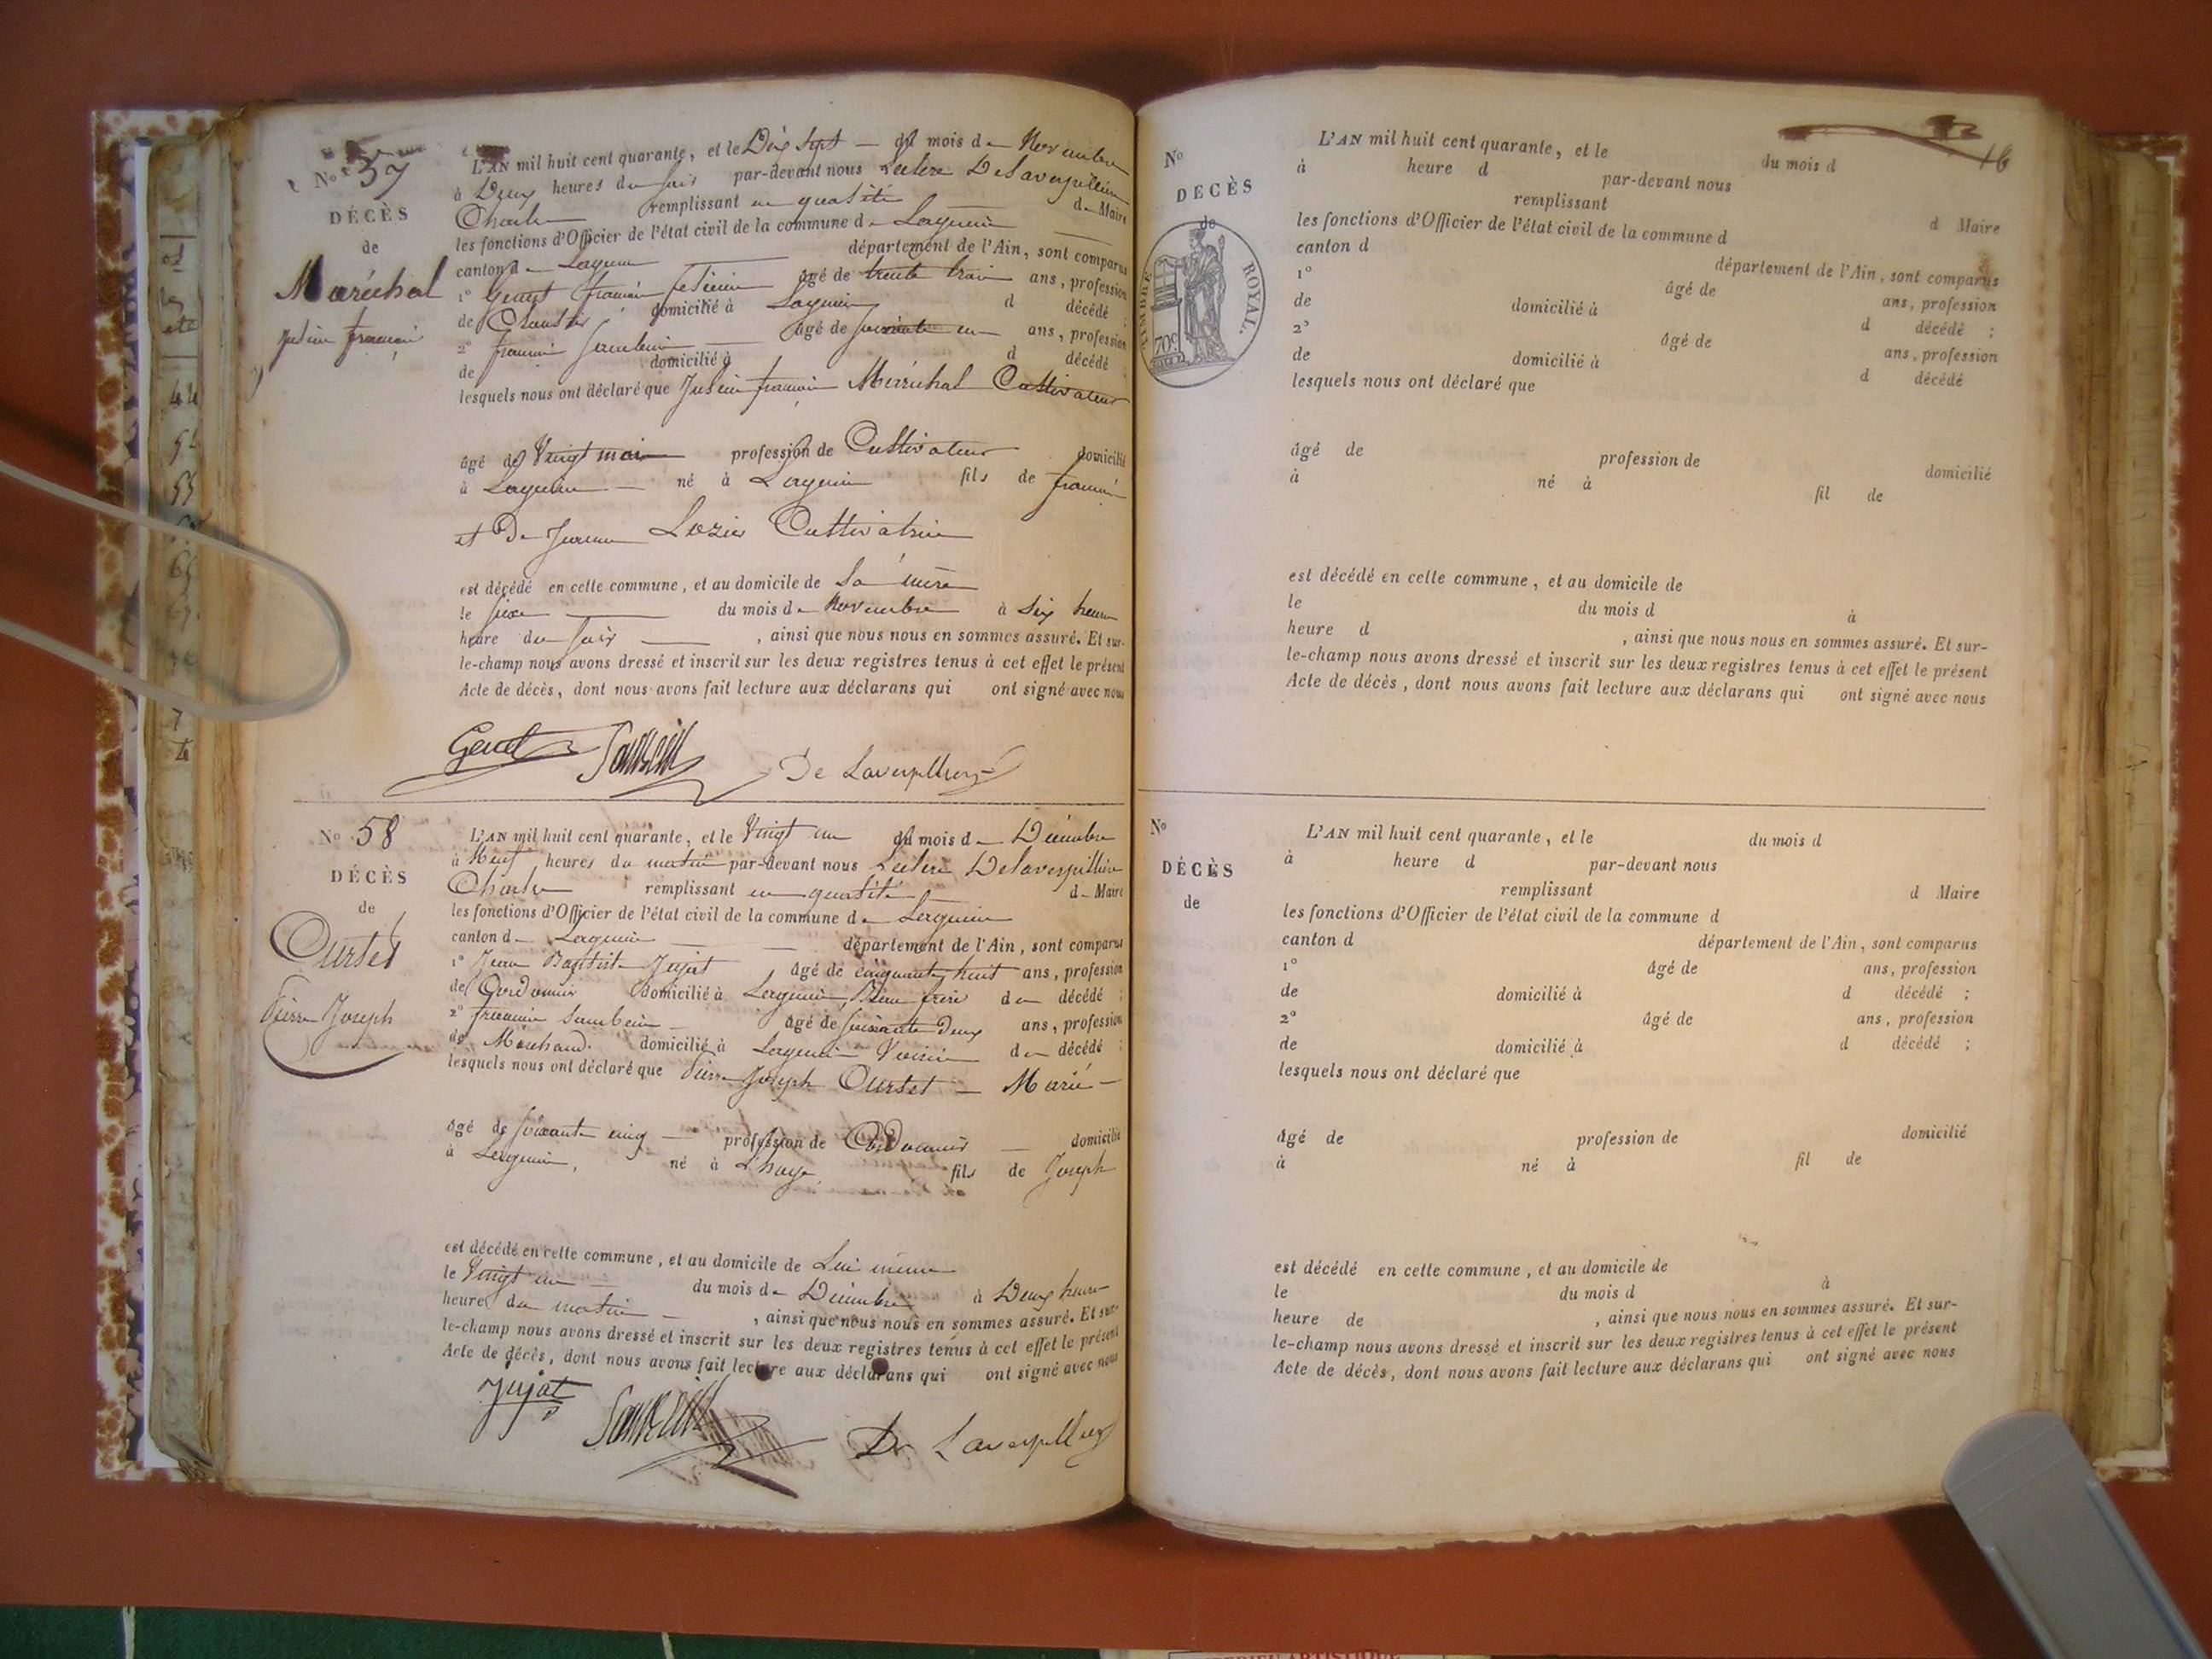 No 57
DÉCÈS
de
Maréchal
L'AN mil huit cent quarante, et le Dix Sept du mois de Novembre
à Deux heures du soir par-devant nous Leclerc Delaverpillière
Charles remplissant en qualité de Maire
les fonctions d'Officier de l'état civil de la commune de Lagnieu
canton de Lagnieu département de l'Ain, sont comparus
1° Genet françois âgé de trente trois ans, profession
de domicilié à Lagnieu d décédé ;
2° françois Sambein âgé de soixante un ans, profession
de domicilié à d décédé ;
lesquels nous ont déclaré que françois Maréchal Cultivateur
âgé de Vingt mois profession de Cultivateur domicilié
à Lagnieu né à Lagnieu fils de françois
et De Lozier Cultivatrice
est décédé en cette commune, et au domicile de Sa mère
le du mois de Novembre à Six heures
heure du Soir , ainsi que nous nous en sommes assuré. Et sur-
le-champ nous avons dressé et inscrit sur les deux registres tenus à cet effet le présent
Acte de décès, dont nous avons fait lecture aux déclarans qui ont signé avec nous
Genet Sambein De Laverpillière
No 58
DÉCÈS
de
Curtet
Pierre Joseph
L'AN mil huit cent quarante, et le Vingt un du mois de Décembre
à Neuf heures du matin par-devant nous Leclerc Delaverpillière
Charles remplissant en qualité de Maire
les fonctions d'Officier de l'état civil de la commune de Lagnieu
canton de Lagnieu département de l'Ain, sont comparus
1° Jean Baptiste Jujat âgé de cinquante huit ans, profession
de Cordonnier domicilié à Lagnieu, Beau frère du décédé ;
2° françois Sambein âgé de soixante Deux ans, profession
de Marchand domicilié à Lagnieu Voisin du décédé ;
lesquels nous ont déclaré que Pierre Joseph Curtet Marié
âgé de soixante cinq profession de Cordonnier domicilié
à Lagnieu, né à L'huys fils de Joseph
est décédé en cette commune, et au domicile de Lui même
le Vingt un du mois de Décembre à Deux heures
heures du matin , ainsi que nous nous en sommes assuré. Et sur-
le-champ nous avons dressé et inscrit sur les deux registres tenus à cet effet le présent
Acte de décès, dont nous avons fait lecture aux déclarans qui ont signé avec nous
Jujat Sambein De Laverpillière
16
No
DÉCÈS
de
TIMBRE ROYAL.
70c
L'AN mil huit cent quarante, et le du mois d
à heure d par-devant nous
remplissant d Maire
les fonctions d'Officier de l'état civil de la commune d
canton d département de l'Ain, sont comparus
1° âgé de ans, profession
de domicilié à d décédé ;
2° âgé de ans, profession
de domicilié à d décédé
lesquels nous ont déclaré que
âgé de profession de domicilié
à né à fil de
est décédé en cette commune, et au domicile de
le du mois d à
heure d , ainsi que nous nous en sommes assuré. Et sur-
le-champ nous avons dressé et inscrit sur les deux registres tenus à cet effet le présent
Acte de décès, dont nous avons fait lecture aux déclarans qui ont signé avec nous
No
DÉCÈS
de
L'AN mil huit cent quarante, et le du mois d
à heure d par-devant nous
remplissant d Maire
les fonctions d'Officier de l'état civil de la commune d
canton d département de l'Ain, sont comparus
1° âgé de ans, profession
de domicilié à d décédé ;
2° âgé de ans, profession
de domicilié à d décédé ;
lesquels nous ont déclaré que
âgé de profession de domicilié
à né à fil de
est décédé en cette commune, et au domicile de
le du mois d à
heure de , ainsi que nous nous en sommes assuré. Et sur-
le-champ nous avons dressé et inscrit sur les deux registres tenus à cet effet le présent
Acte de décès, dont nous avons fait lecture aux déclarans qui ont signé avec nous